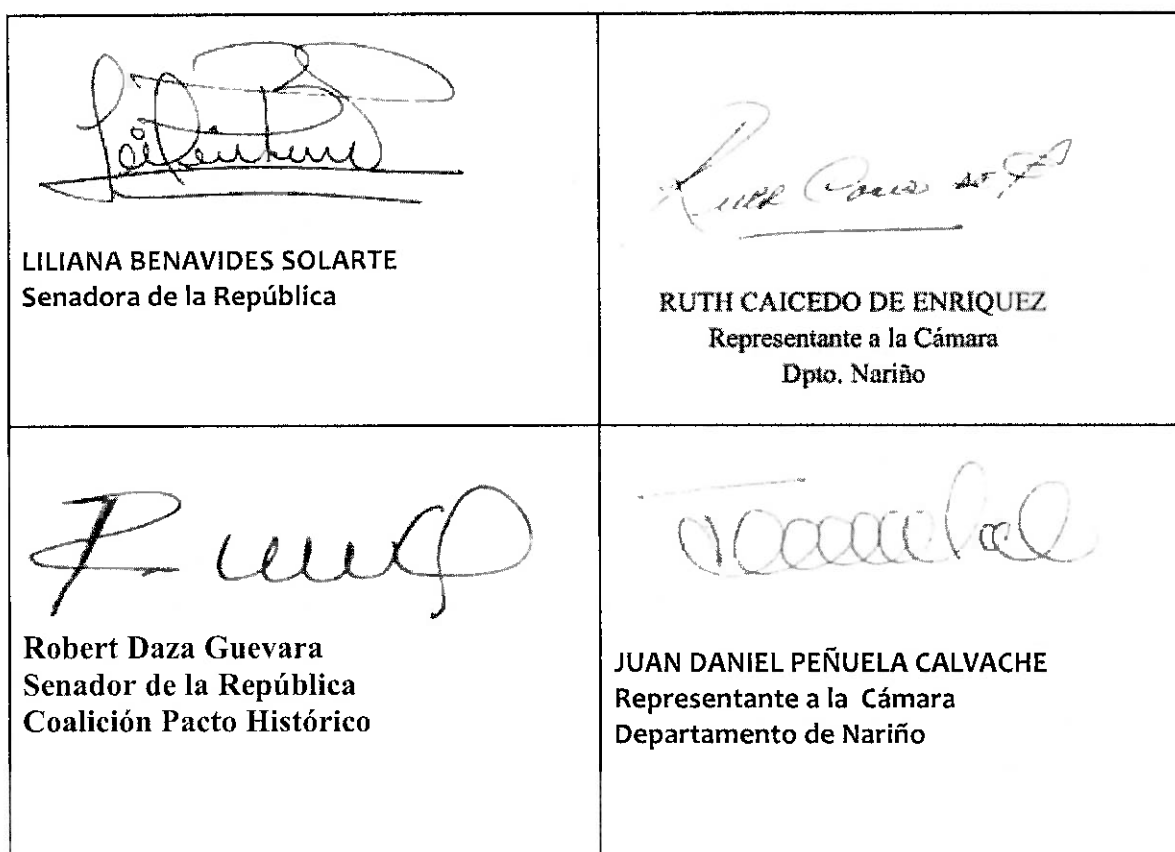 LILIANA BENAVIDES SOLARTE
Senadora de la República
RUTH CAICEDO DE ENRIQUEZ
Representante a la Cámara
Dpto. Nariño
Robert Daza Guevara
Senador de la República
Coalición Pacto Histórico
JUAN DANIEL PEÑUELA CALVACHE
Representante a la Cámara
Departamento de Nariño